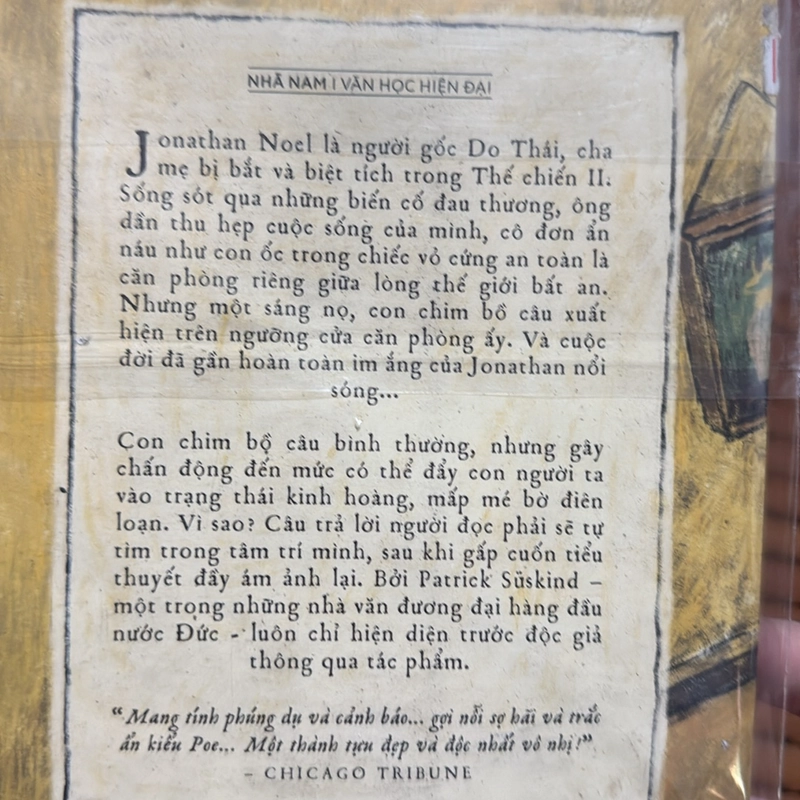 NHÃ NAM | VĂN HỌC HIỆN ĐẠI
Jonathan Noel là người gốc Do Thái, cha
mẹ bị bắt và biệt tích trong Thế chiến II.
Sống sót qua những biến cố đau thương, ông
dần thu hẹp cuộc sống của mình, cô đơn ẩn
náu như con ốc trong chiếc vỏ cứng an toàn là
căn phòng riêng giữa lòng thế giới bất an.
Nhưng một sáng nọ, con chim bồ câu xuất
hiện trên ngưỡng cửa căn phòng ấy. Và cuộc
đời đã gần hoàn toàn im ắng của Jonathan nổi
sóng...
Con chim bồ câu bình thường, nhưng gây
chấn động đến mức có thể đẩy con người ta
vào trạng thái kinh hoàng, mấp mé bờ điên
loạn. Vì sao? Câu trả lời người đọc phải sẽ tự
tìm trong tâm trí mình, sau khi gấp cuốn tiểu
thuyết đầy ám ảnh lại. Bởi Patrick Süskind –
một trong những nhà văn đương đại hàng đầu
nước Đức - luôn chỉ hiện diện trước độc giả
thông qua tác phẩm.
“Mang tính phúng dụ và cảnh báo... gợi nỗi sợ hãi và trắc
ẩn kiểu Poe... Một thành tựu đẹp và độc nhất vô nhị!”
– CHICAGO TRIBUNE